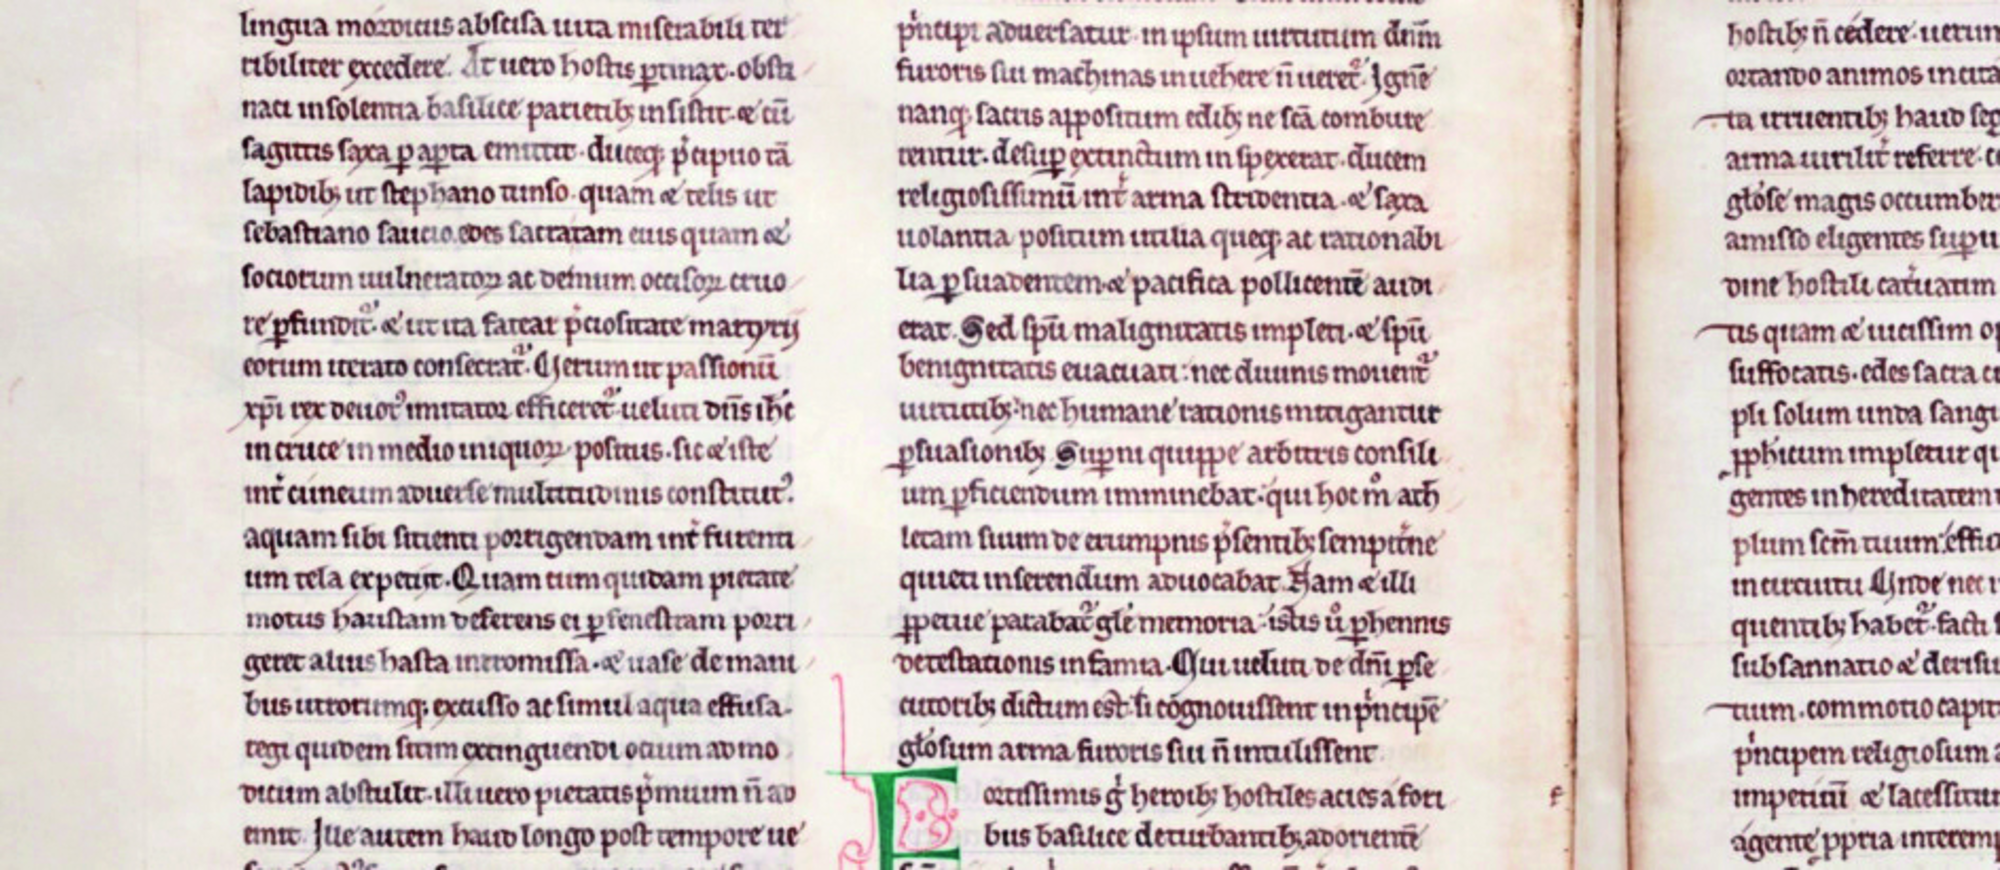 lingua mordicus abscisa uita miserabili ter
ribiliter excedere. At uero hostis ꝑtinax. obsti
naci insolentia basilice parietibꝫ insistit. ⁊ cū
sagittis saxa ꝑ aꝑta emittit. duceqꝫ p̄cipuo tā
lapidibꝫ ut stephano tunso. quam ⁊ telis ut
sebastiano saucio. edes sacratam eius quam ⁊
sociorum uulneratoꝝ ac demum occisoꝝ cruo
re ꝑfundit᷑. ⁊ ut ita fatear p̄ciositate martyrij
eorum iterato consecrat᷑. Uerum ut passionū
xp̄i rex deuotꝰ imitator efficeret᷑. ueluti dn̄s ihc̄
in cruce in medio iniquoꝝ positus. sic ⁊ iste
int̄ cuneum aduerse multitudinis constitutꝰ.
aquam sibi sitienti porrigendam int̄ furenti
um tela expetiit. Quam cum quidam pietate
motus haustam deferens ei ꝑ fenestram porri
geret alius hasta intromissa. ⁊ uase de mani
bus utrorumqꝫ excusso ac simul aqua effusa.
regi quidem sitim extinguendi ocium ad mo
dicum abstulit. illi uero pietatis p̄mium n̄ ad
emit. Ille autem haud longo post tempore ue
pͥncipi aduersatur. in ipsum uirtutum dn̄m
furoris sui machinas inuehere n̄ ueret᷑. Ignē
nanqꝫ sacris appositum edibꝫ ne sc̄a combure
rentur. desuꝑ extinctum inspexerat. ducem
religiosissimū int̄ arma stridentia. ⁊ saxa
uolantia positum utilia queqꝫ ac rationabi
lia ꝑsuadentem. ⁊ pacifica pollicentē audi
erat. Sed sp̄u malignitatis impleti. ⁊ sp̄u
benignitatis euacuati. nec diuinis mouent᷑
uirtutibꝫ. nec humane rationis mitigantur
ꝑsuasionibꝫ. Suꝑni quippe arbitris consili
um ꝑficiendum imminebat. qui hoc mͦ ath
letam suum de erumpnis p̄sentibꝫ sempit̄ne
quieti inserendum aduocabat. Nam ⁊ illi
ꝑpetue parabat᷑ gl̄e memoria. istis uͦ ꝑhennis
detestationis infamia. Qui ueluti de dn̄i ꝑse
cutoribꝫ dictum est. si cognouissent in pͥncipē
gl̄osum arma furoris sui n̄ intulissent.
Fortissimis gͥ heroibꝫ hostiles acies a fori
bus basilice deturbantibꝫ, adorientē
hostibꝫ n̄ cedere. uerum
ortando animos incita
ta irruentibꝫ haud seg
arma uirilit̄ referre. c
gl̄ose magis occumber
amisso eligentes suꝑu
dine hostili cateruatim
tis quam ⁊ uicissim op
suffocatis. edes sacra c
pli solum unda sangu
ꝓph̄icum impletur qu
gentes in hereditatem
plum sc̄m tuum. effic
in circuitu. Unde nec
quentibꝫ habet᷑. facti s
subsannatio ⁊ derisu
tium. commotio capit
pͥncipem religiosum a
impetiuī ⁊ lacessitu
agente ꝓpria interemp